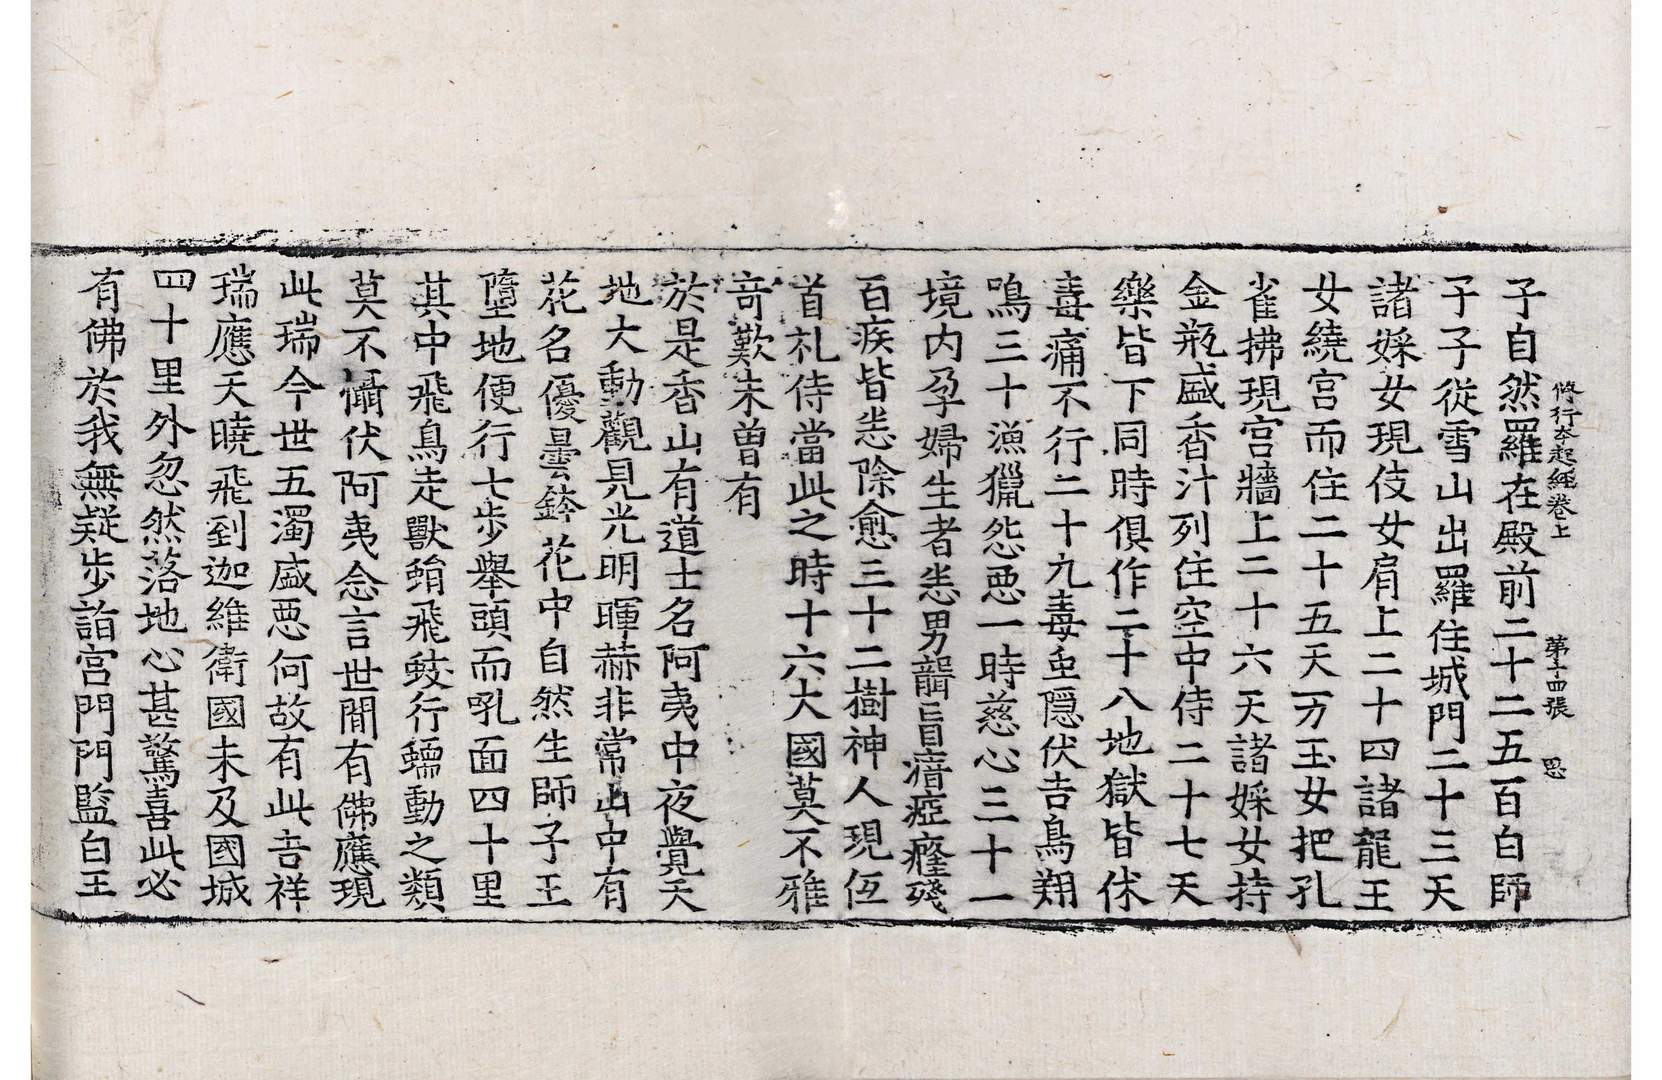 修行本起經卷上 第十四張 思
子自然羅在殿前二十二五百白師
子子從雪山出羅住城門二十三天
諸婇女現伎女肩上二十四諸龍王
女繞宮而住二十五天万玉女把孔
雀拂現宮牆上二十六天諸婇女持
金瓶盛香汁列住空中侍二十七天
樂皆下同時俱作二十八地獄皆休
毒痛不行二十九毒䖝隱伏吉鳥翔
鳴三十漁獵怨惡一時慈心三十一
境内孕婦生者悉男聾盲瘖瘂癃殘
百疾皆悉除愈三十二樹神人現伍
首礼侍當此之時十六大國莫不雅
竒歎未曽有
於是香山有道士名阿夷中夜覺天
地大動觀見光明暉赫非常山中有
花名優曇鉢花中自然生師子王
墮地便行七步舉頭而吼面四十里
其中飛鳥走獸蜎飛蚑行蠕動之類
莫不懾伏阿夷念言世間有佛應現
此瑞今世五濁盛惡何故有此吉祥
瑞應天曉飛到迦維衛國未及國城
四十里外忽然落地心甚驚喜此必
有佛於我無疑步詣宮門門監白王